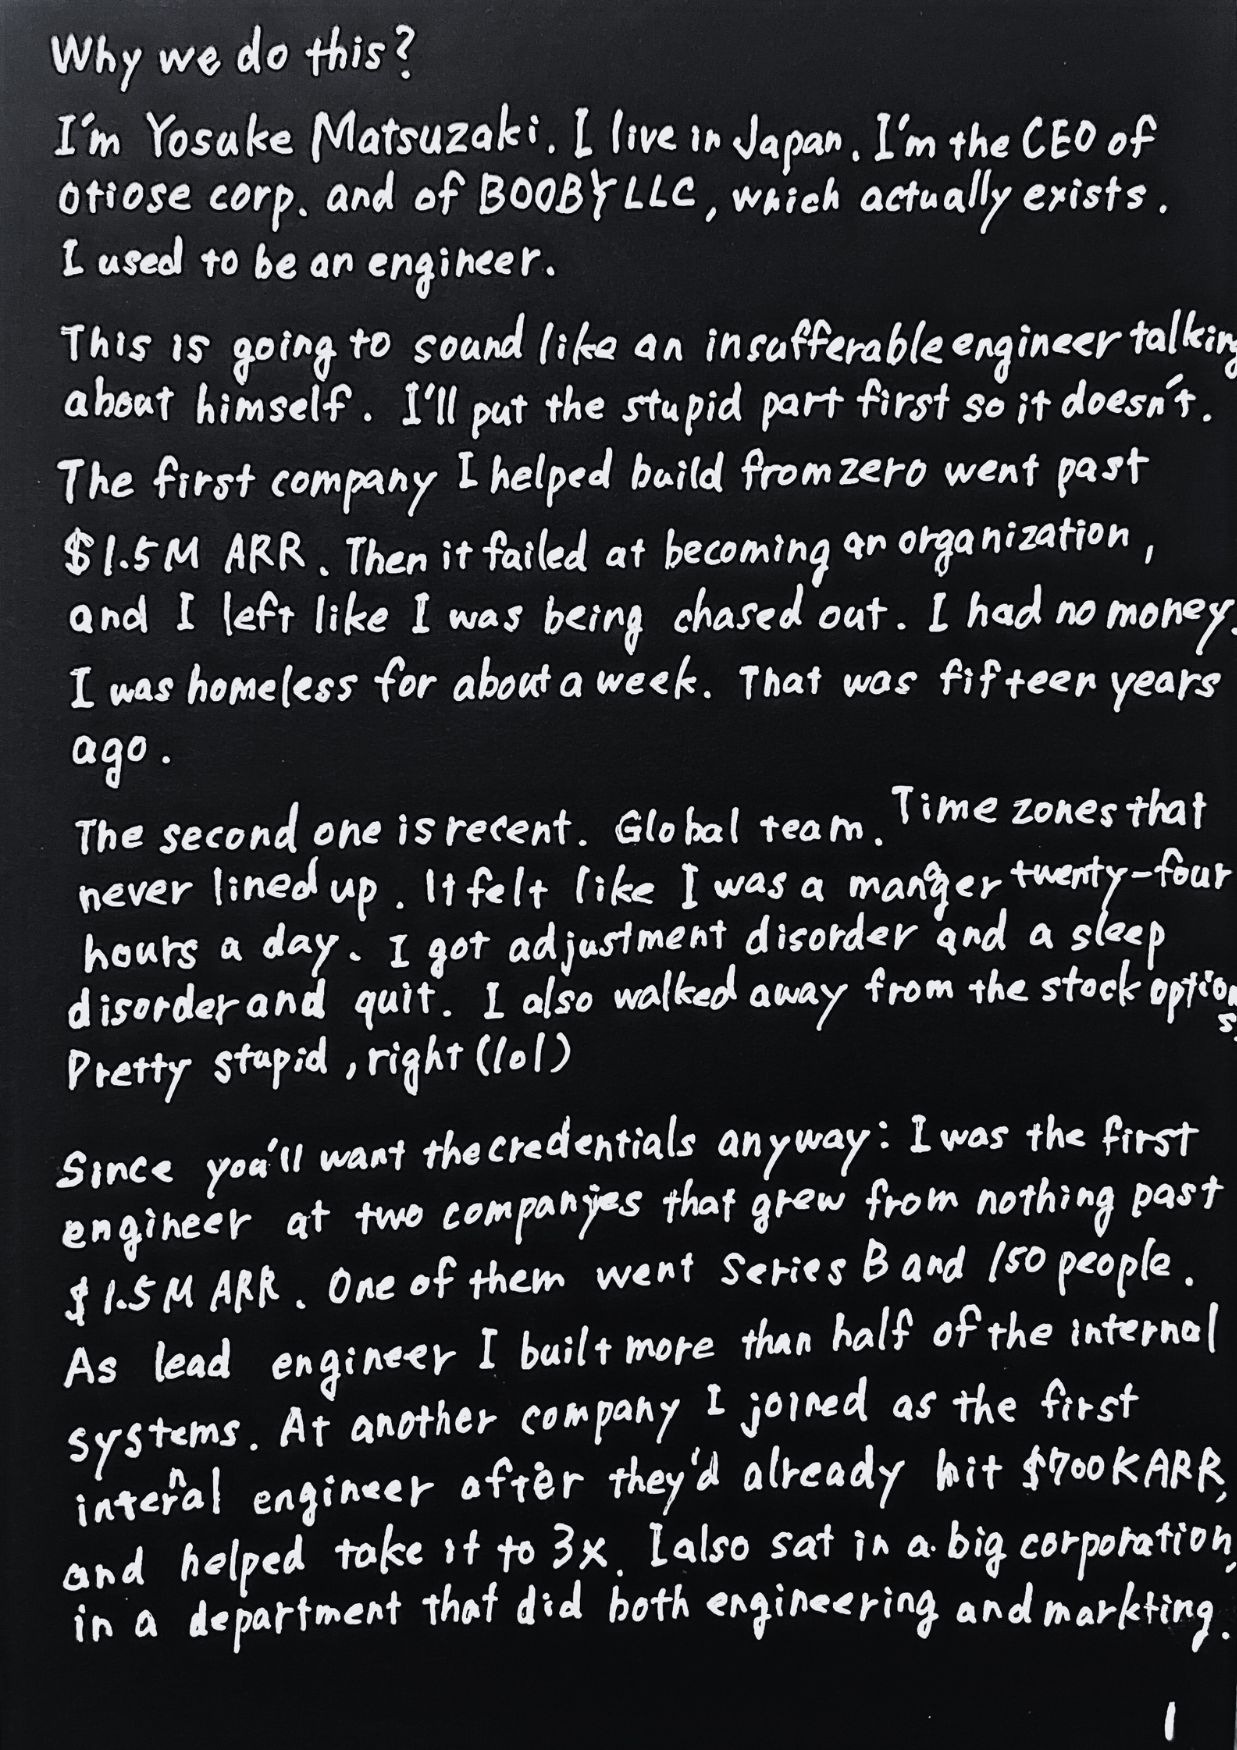 Why we do this?
I'm Yosuke Matsuzaki. I live in Japan. I'm the CEO of
otiose corp. and of BOOBY LLC, which actually exists.
I used to be an engineer.
This is going to sound like an insufferable engineer talking
about himself. I'll put the stupid part first so it doesn't.
The first company I helped build from zero went past
$1.5M ARR. Then it failed at becoming an organization,
and I left like I was being chased out. I had no money.
I was homeless for about a week. That was fifteen years
ago.
The second one is recent. Global team. Time zones that
never lined up. It felt like I was a manger twenty-four
hours a day. I got adjustment disorder and a sleep
disorder and quit. I also walked away from the stock options.
Pretty stupid, right (lol)
Since you'll want the credentials anyway: I was the first
engineer at two companies that grew from nothing past
$1.5M ARR. One of them went Series B and 150 people.
As lead engineer I built more than half of the internal
systems. At another company I joined as the first
internal engineer after they'd already hit $700K ARR,
and helped take it to 3x. I also sat in a big corporation,
in a department that did both engineering and markting.
1